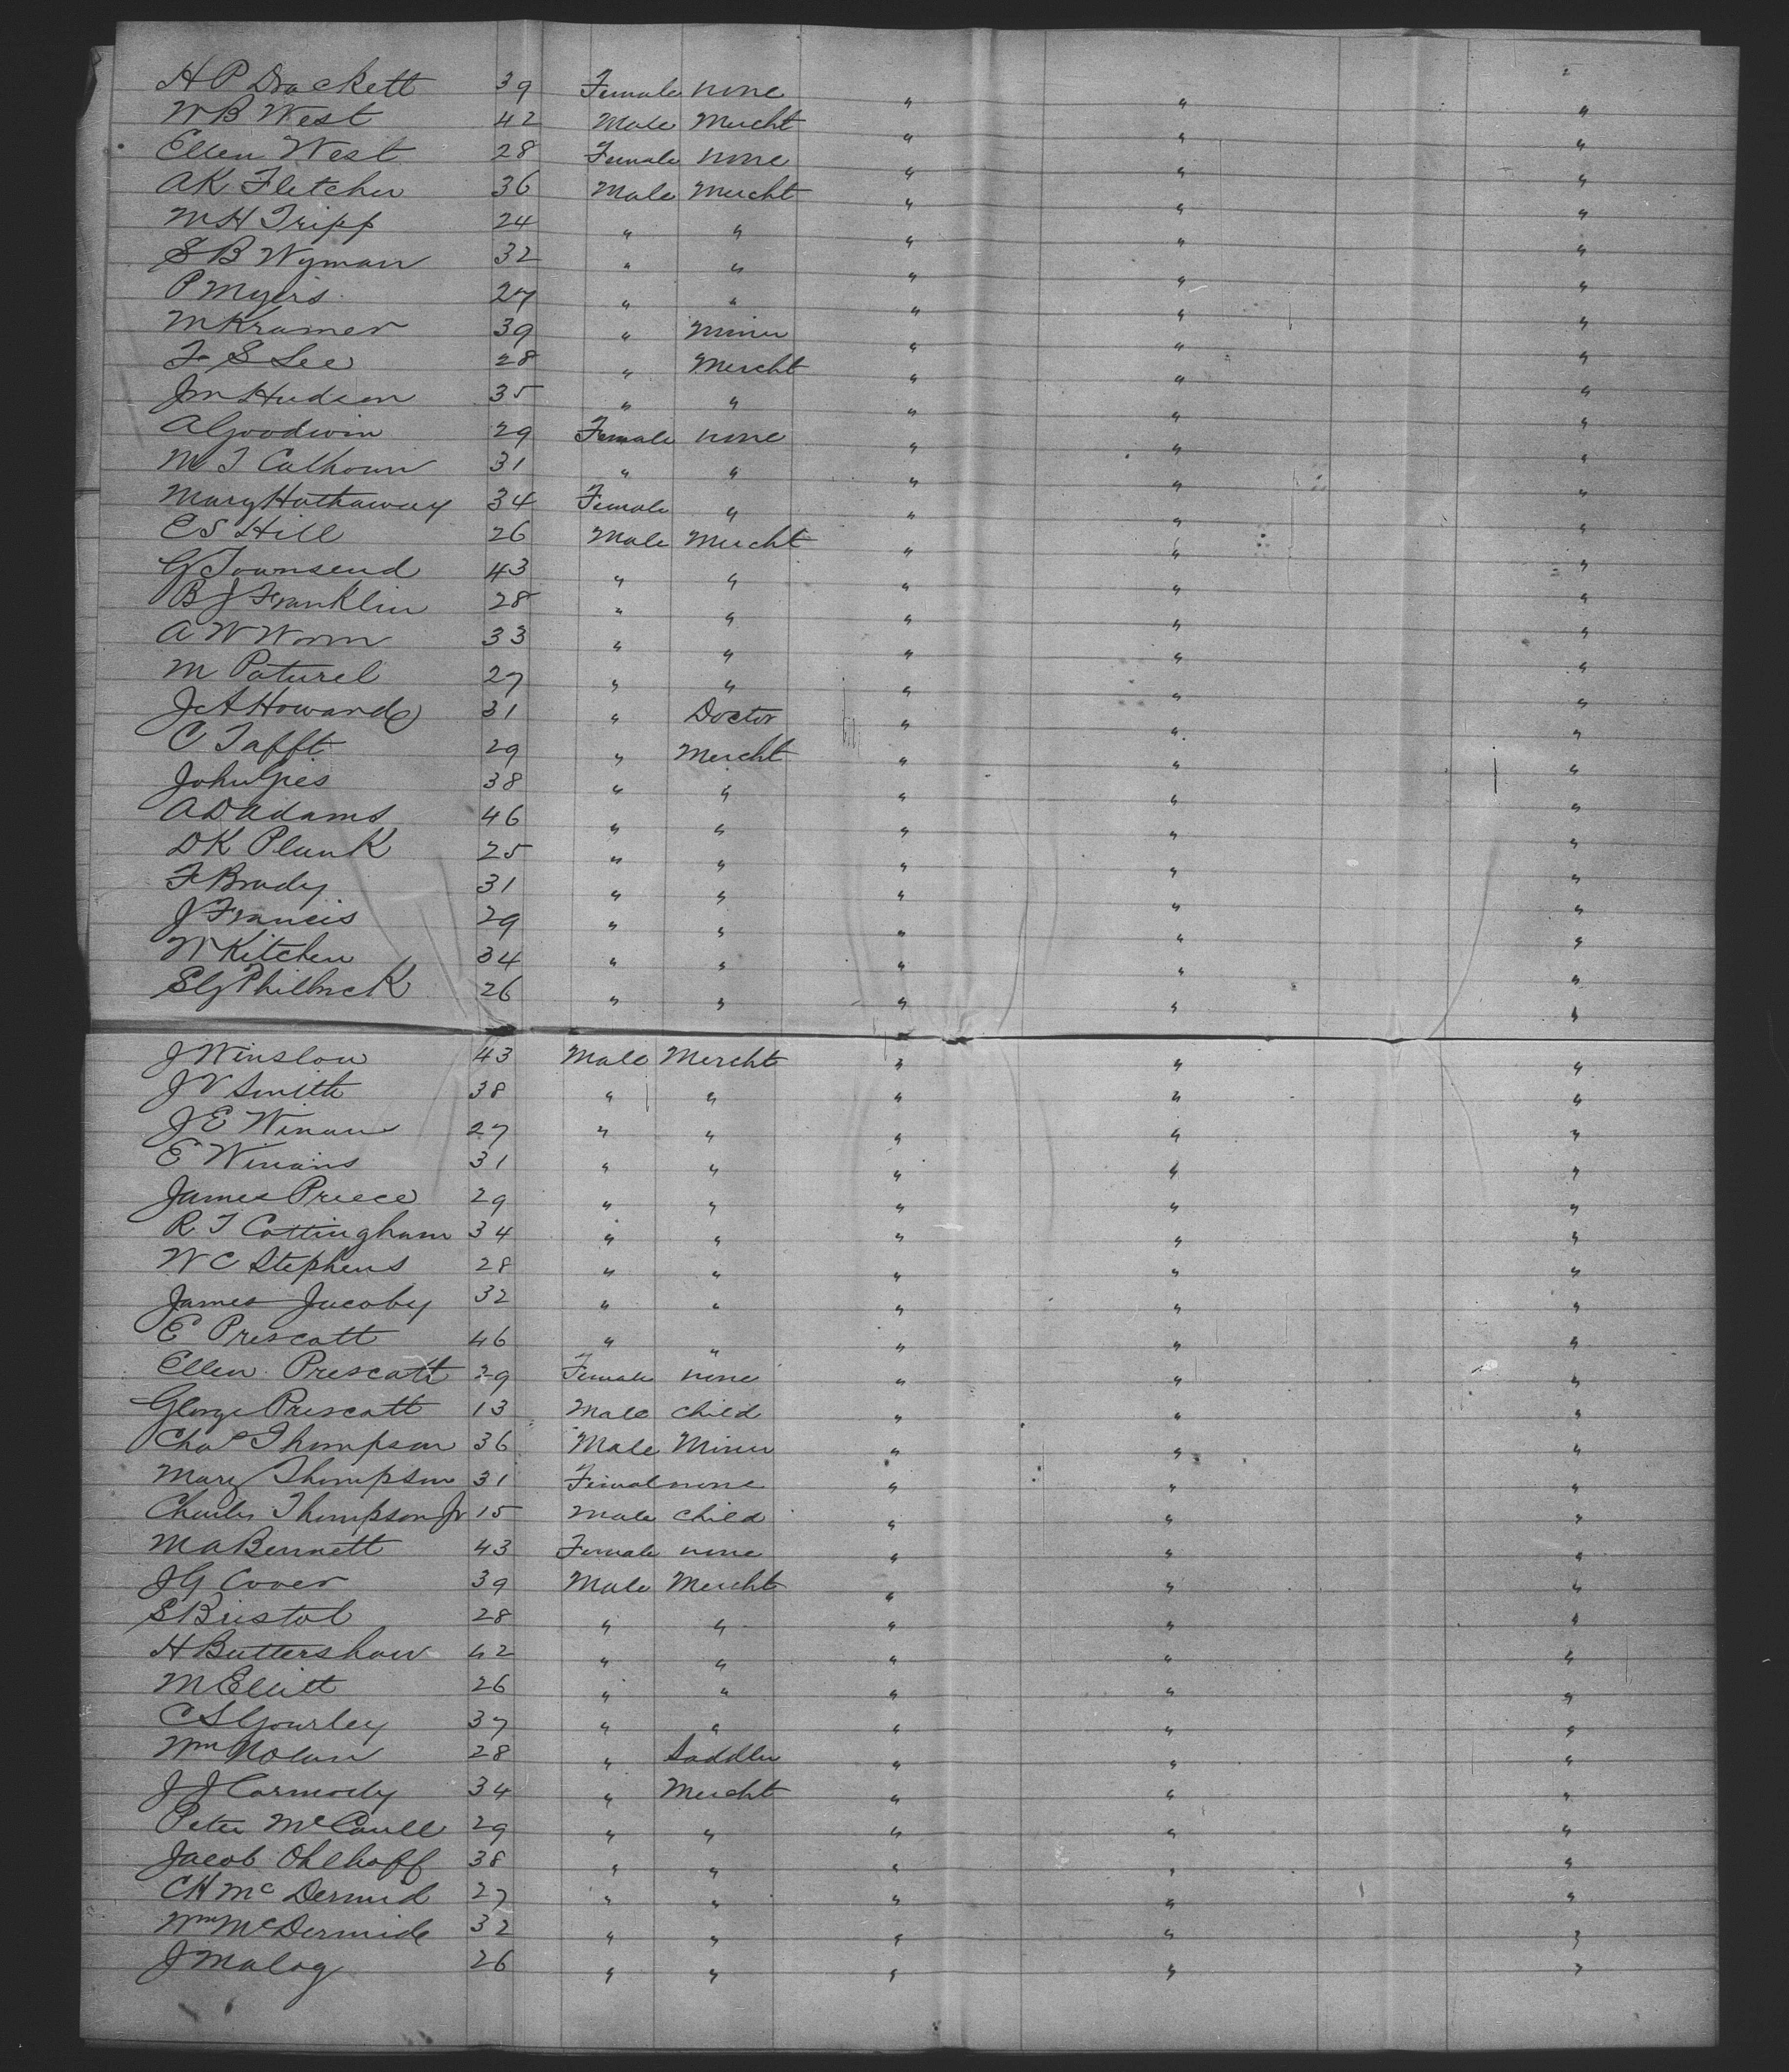 H P Drackett 39 Female none " " "
W B West 42 Male Mercht " " "
Ellen West 28 Female none " " "
A K Fletcher 36 Male Mercht " " "
M H Tripp 24 " " " " "
S B Wyman 32 " " " " "
P Myers 27 " " " " "
M Kramer 39 " Miner " " "
F S Lee 28 " Mercht " " "
Jm Hudson 35 " " " " "
A Goodwin 29 Female none " " "
M T Calhoun 31 " " " " "
Mary Hathaway 34 Female " " " "
E S Hill 26 Male Mercht " " "
G Townsend 43 " " " " "
B J Franklin 28 " " " " "
A W Worm 33 " " " " "
M Paturel 27 " " " " "
J A Howard 31 " Doctor " " "
C Tafft 29 " Mercht " " "
John Gies 38 " " " " "
A D Adams 46 " " " " "
D K Plunk 25 " " " " "
F Brady 31 " " " " "
J Francis 29 " " " " "
W Kitchen 34 " " " " "
Philbrick 26 " " " " "
J Winslow 43 Male Mercht " " "
J V Smith 38 " " " " "
J E Winans 27 " " " " "
E Winans 31 " " " " "
James Preece 29 " " " " "
R T Cottingham 34 " " " " "
W C Stephens 28 " " " " "
James Jacoby 32 " " " " "
E Prescott 46 " " " " "
Ellen Prescott 29 Female none " " "
George Prescott 13 Male child " " "
Chas Thompson 36 Male Miner " " "
Mary Thompson 31 Female none " " "
Charles Thompson Jr 15 Male child " " "
M A Bennett 43 Female none " " "
J G Cover 39 Male Mercht " " "
S Bristol 28 " " " " "
H Buttershaw 42 " " " " "
M Elliott 26 " " " " "
C S Gourley 37 " " " " "
Wm Nolan 28 " Saddler " " "
J J Carmody 34 " Mercht " " "
Peter McCaull 29 " " " " "
Jacob Ohlhoff 38 " " " " "
C H McDermid 27 " " " " "
Wm McDermide 32 " " " " "
J Malog 26 " " " " "